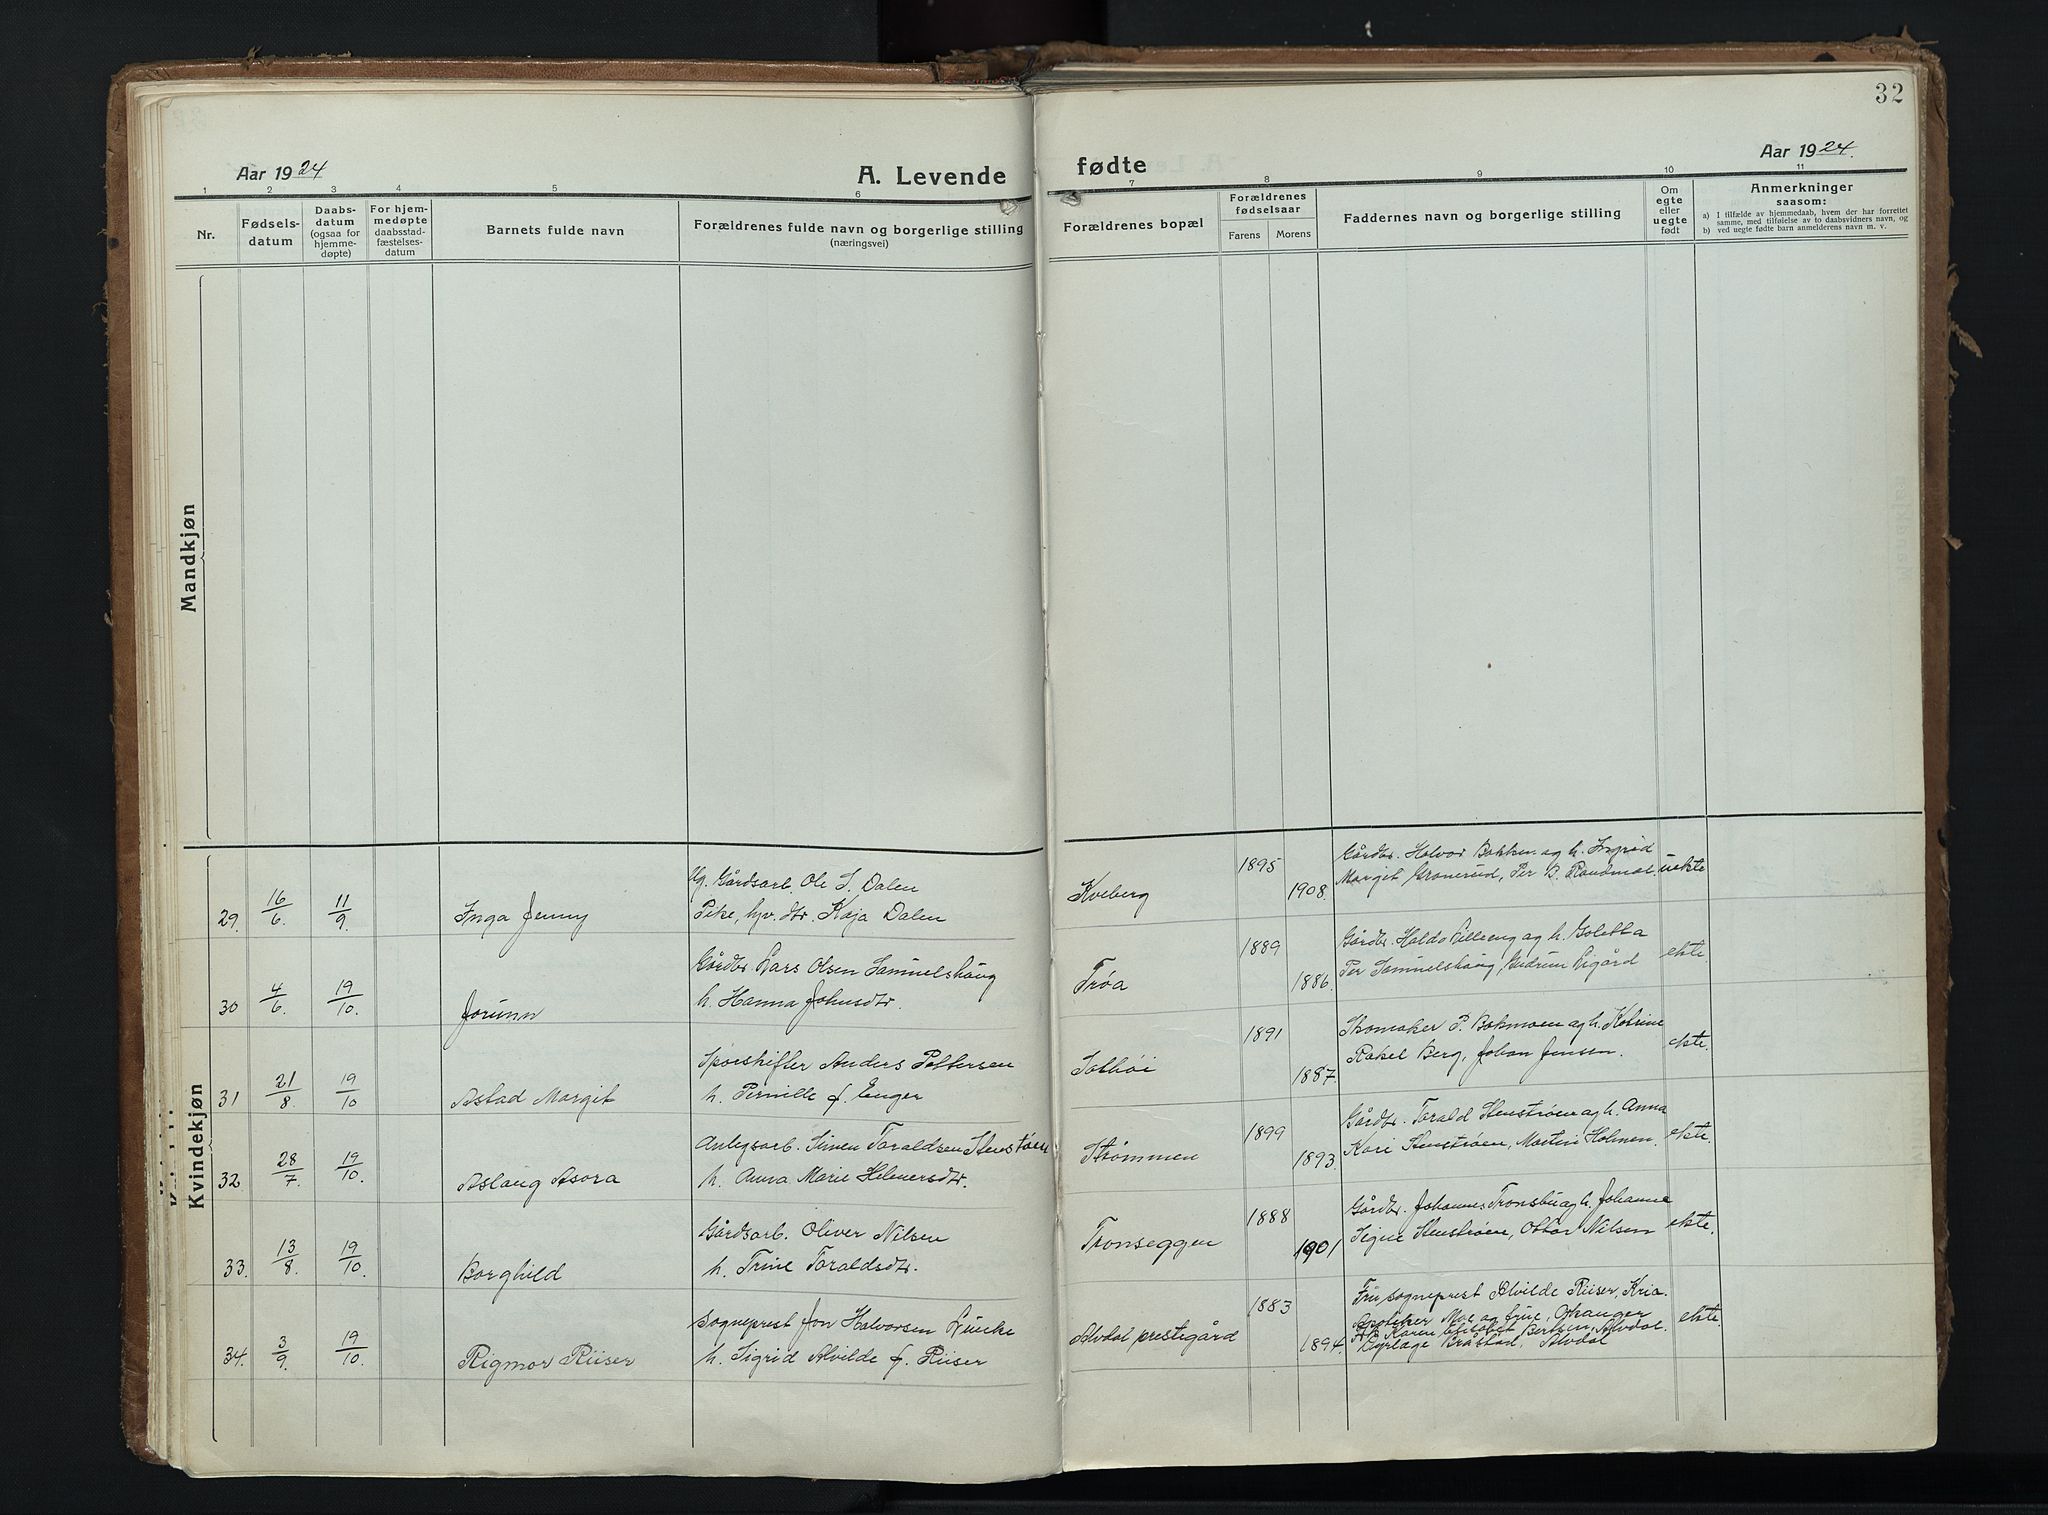 32
Aar 1924
A. Levende
fødte
Aar 1924.
1 2 3 4 5 6 7 8 9 10 11
Nr.
Fødselsdatum
Daabsdatum (ogsaa for hjemmedøpte)
For hjemmedøpte daabsstadfæstelsesdatum
Barnets fulde navn
Forældrenes fulde navn og borgerlige stilling
(næringsvei)
Forældrenes bopæl
Forældrenes fødselsaar
Farens Morens
Faddernes navn og borgerlige stilling
Om egte eller uegte født
Anmerkninger saasom:
a) I tilfælde av hjemmedaab, hvem der har forrettet samme, med tilføielse av to daabsvidners navn, og
b) ved uegte fødte barn anmelderens navn m. v.
Mandkjøn
Kvindekjøn
29. 16/6. 11/9. Inga Jenny
Ug. Gårdsarb. Ole S. Dalen
Pike, hjv. dtr. Kaja Dalen
Kveberg
1895
1908.
Gårdbr. Halvor Bakken og h. Ingrid
Margit Gronerud, Per B. Randmæl.
uekte
30 4/6. 19/10. Jorunn
Gårdbr. Lars Olsen Samuelshaug
h. Hanna Johnsdtr.
Trøa
1889
1886.
Gårdbr. Haldo Lilleeng og h. Goletta
Per Samuelshaug, Gudrun Ligård
ekte.
31 21/8. 19/10 Astad Margit
Sporskifter Anders Pettersen
h. Pernille f. Enger
Solhøi
1891
1887.
Skomaker P. Bakmoen og h. Katrine
Rakel Berg, Johan Jensen.
ekte.
32 28/7. 19/10. Aslaug Asora
Anlegsarb. Simen Toraldsen Stenstrøen
h. Anna Marie Helmersdtr.
Strømmen
1899
1893.
Gårdbr. Torald Stenstrøen og h. Anna
Kari Stenstrøen, Martin Holmen.
ekte.
33. 13/8. 19/10. Borghild
Gårdsarb. Oliver Nilsen
h. Trine Toraldsdtr.
Tronseggen
1888
1901
Gårdbr. Johannes Tronsbu og h. Johanne
Signe Stenstrøen, Ottar Nilsen
ekte.
34. 3/9. 19/10. Rigmor Riiser
Sogneprest Jon Halvorsen
h. Sigrid Alvilde f. Riiser
Alvdal prestegård
1883
1894.
Fru sogneprest Alvilde Riiser, Kria.
Apoteker Moe og frue, Orkanger
Karen Elisabet Bertsen, Alvdal.
Kråstad, Alvdal
ekte.